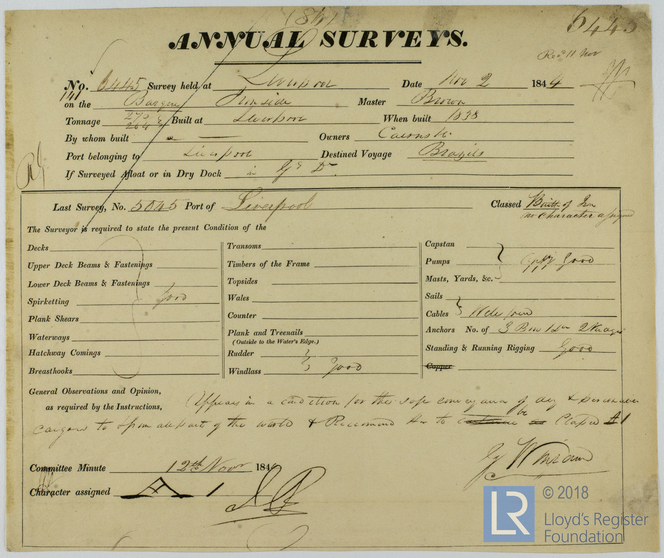 6445
ANNUAL SURVEYS.
Recd 11 Nov
No. 6445 Survey held at Liverpool Date Nov 2 1844
on the Barque Ironside Master Brown
Tonnage 270 264 Built at Liverpool When built 1838
By whom built Owners Cairns &
Port belonging to Liverpool Destined Voyage Brazils
If Surveyed Afloat or in Dry Dock in Gg D
Last Survey, No. 5045 Port of Liverpool Classed Built of Iron
no Character assigned
The Surveyor is required to state the present Condition of the
Decks
Upper Deck Beams & Fastenings
Lower Deck Beams & Fastenings
Spirketting good
Plank Shears
Waterways
Hatchway Comings
Breasthooks
Transoms
Timbers of the Frame
Topsides
Wales
Counter
Plank and Treenails
(Outside to the Water's Edge.)
Rudder
Windlass Good
Capstan
Pumps Good
Masts, Yards, &c.
Sails
Cables Well found
Anchors No. of 3 Bow 1 2 Kedges
Standing & Running Rigging Good
Copper
General Observations and Opinion,
as required by the Instructions, Appears in a condition for the safe conveyance of dry & perishable
cargoes to & from all part of the world & Recommend Her to be Classed A1
Committee Minute 12th Nov 184
Character assigned A 1
LR
© 2018
Lloyd's Register
Foundation